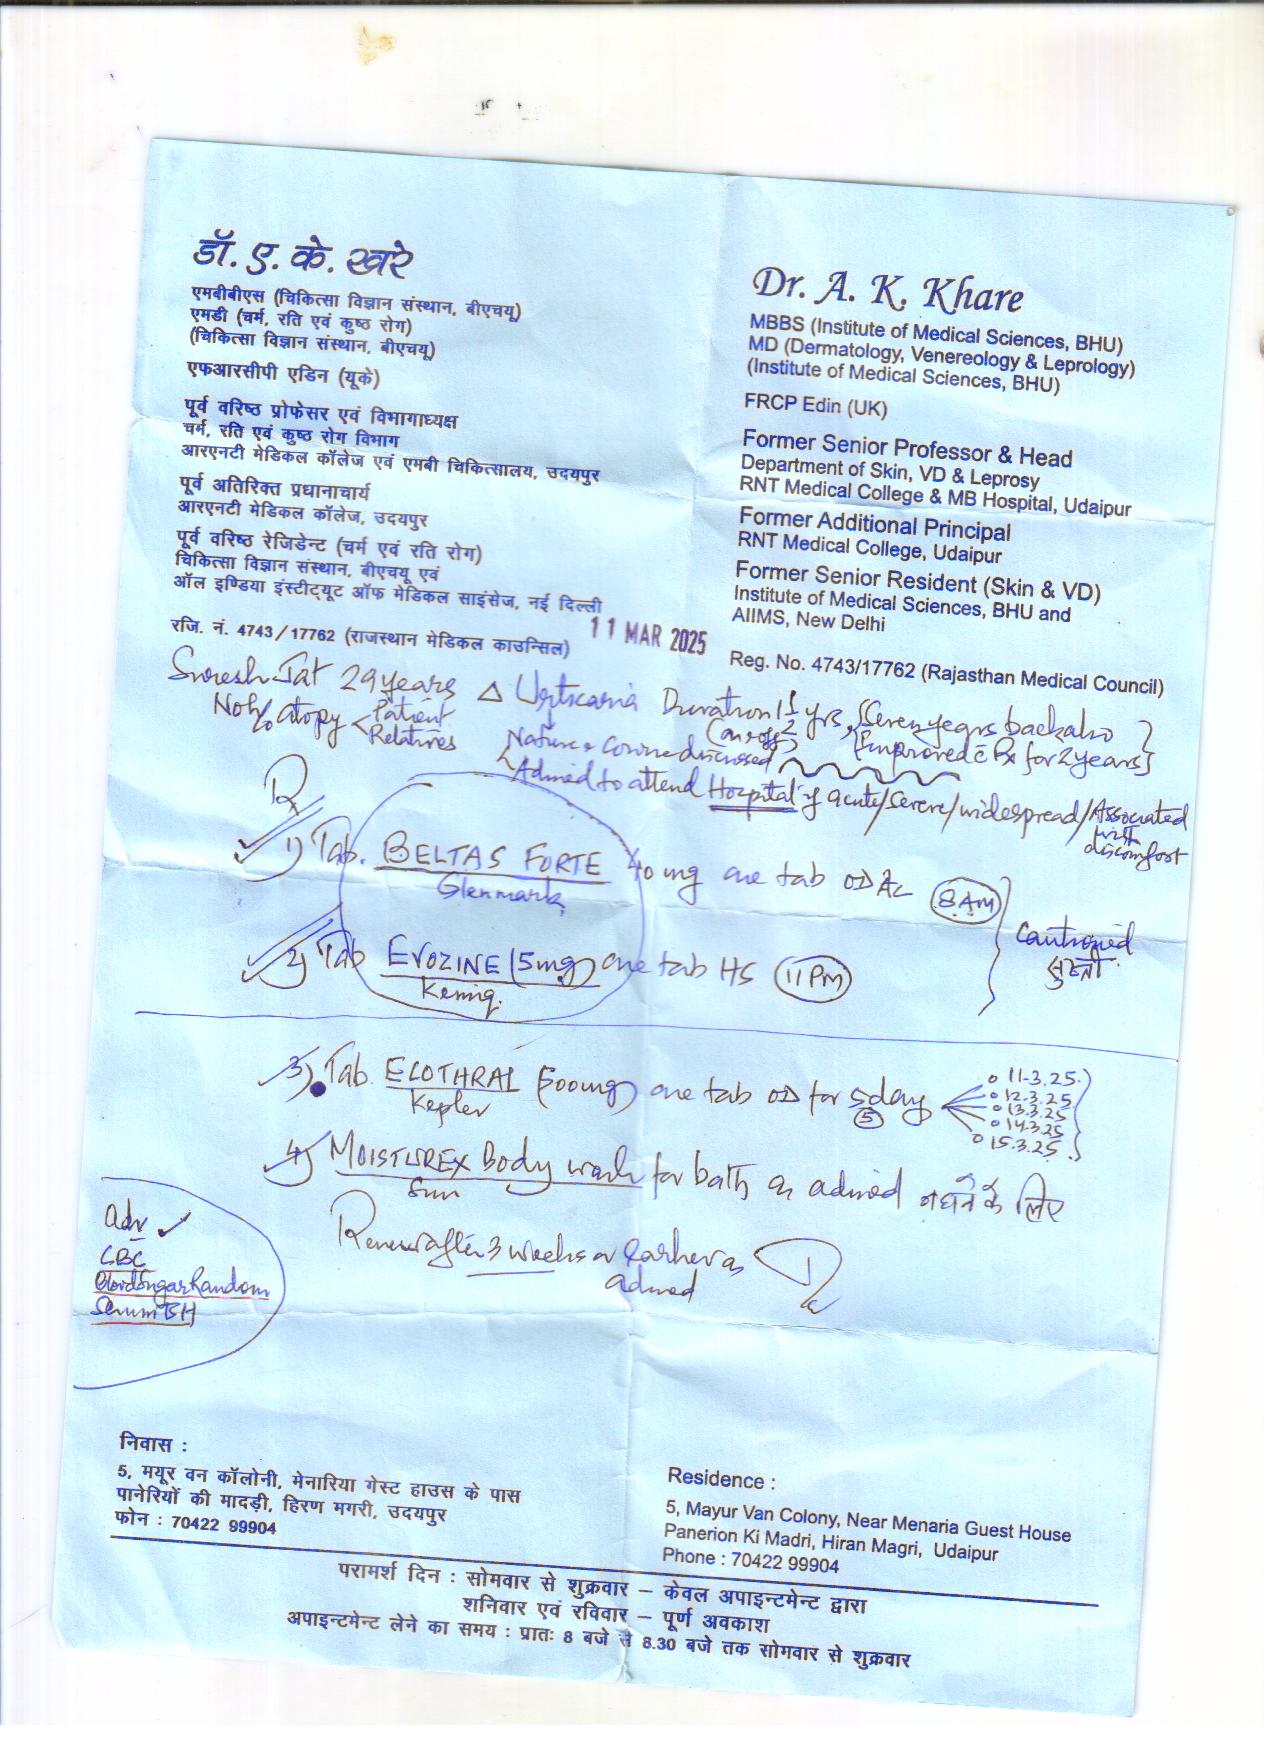 डॉ. ए. के. खरे
एमबीबीएस (चिकित्सा विज्ञान संस्थान, बीएचयू)
एमडी (चर्म, रति एवं कुष्ठ रोग)
(चिकित्सा विज्ञान संस्थान, बीएचयू)
एफआरसीपी एडिन (यूके)
पूर्व वरिष्ठ प्रोफेसर एवं विभागाध्यक्ष
चर्म, रति एवं कुष्ठ रोग विभाग
आरएनटी मेडिकल कॉलेज एवं एमबी चिकित्सालय, उदयपुर
पूर्व अतिरिक्त प्रधानाचार्य
आरएनटी मेडिकल कॉलेज, उदयपुर
पूर्व वरिष्ठ रेजिडेन्ट (चर्म एवं रति रोग)
चिकित्सा विज्ञान संस्थान, बीएचयू एवं
ऑल इण्डिया इंस्टीट्यूट ऑफ मेडिकल साइंसेज, नई दिल्ली
रजि. नं. 4743/17762 (राजस्थान मेडिकल काउन्सिल)
Dr. A. K. Khare
MBBS (Institute of Medical Sciences, BHU)
MD (Dermatology, Venereology & Leprology)
(Institute of Medical Sciences, BHU)
FRCP Edin (UK)
Former Senior Professor & Head
Department of Skin, VD & Leprosy
RNT Medical College & MB Hospital, Udaipur
Former Additional Principal
RNT Medical College, Udaipur
Former Senior Resident (Skin & VD)
Institute of Medical Sciences, BHU and
AIIMS, New Delhi
Reg. No. 4743/17762 (Rajasthan Medical Council)
11 MAR 2025
Suresh Jat 29 years △ Urticaria Duration 1½ yrs, {Seven years back also
No h/o atopy < Patient
Relatives
(on & off)
Improved c Rx for 2 years}
Nature & Course discussed
Advised to attend Hospital if acute/severe/widespread/Associated
with
discomfort
Rx
1) Tab. BELTAS FORTE 40 mg one tab OD AC 8 AM
Glenmark
Cautioned
सुस्ती
2) Tab EVOZINE (5mg) one tab HS 11 PM
3) Tab. ECOTHRAL (500mg) one tab OD for 5 day
Kepler
5
11-3.25.
12.3.25
13.3.25
14.3.25
15.3.25
4) MOISTUREX Body wash for bath as advised नहाने के लिए
Sun
Review after 3 weeks or Earlier as
advised
Adv
CBC
Blood Sugar Random
Serum TSH
निवास :
5, मयूर वन कॉलोनी, मेनारिया गेस्ट हाउस के पास
पानेरियों की मादड़ी, हिरण मगरी, उदयपुर
फोन : 70422 99904
Residence :
5, Mayur Van Colony, Near Menaria Guest House
Panerion Ki Madri, Hiran Magri, Udaipur
Phone : 70422 99904
परामर्श दिन : सोमवार से शुक्रवार – केवल अपाइन्टमेन्ट द्वारा
शनिवार एवं रविवार – पूर्ण अवकाश
अपाइन्टमेन्ट लेने का समय : प्रातः 8 बजे से 8.30 बजे तक सोमवार से शुक्रवार